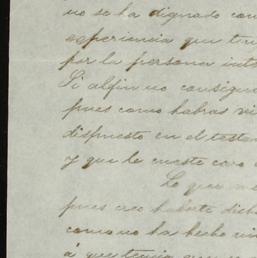 no se ha dignado con
esperiencia que tu
por la persona inte
Si al fin no consigue
pues como habras vi
dispuesto en el testa
y que le cueste caro
Lo que me
pues creo haberte dich
como no ha hecho
á que tenia que